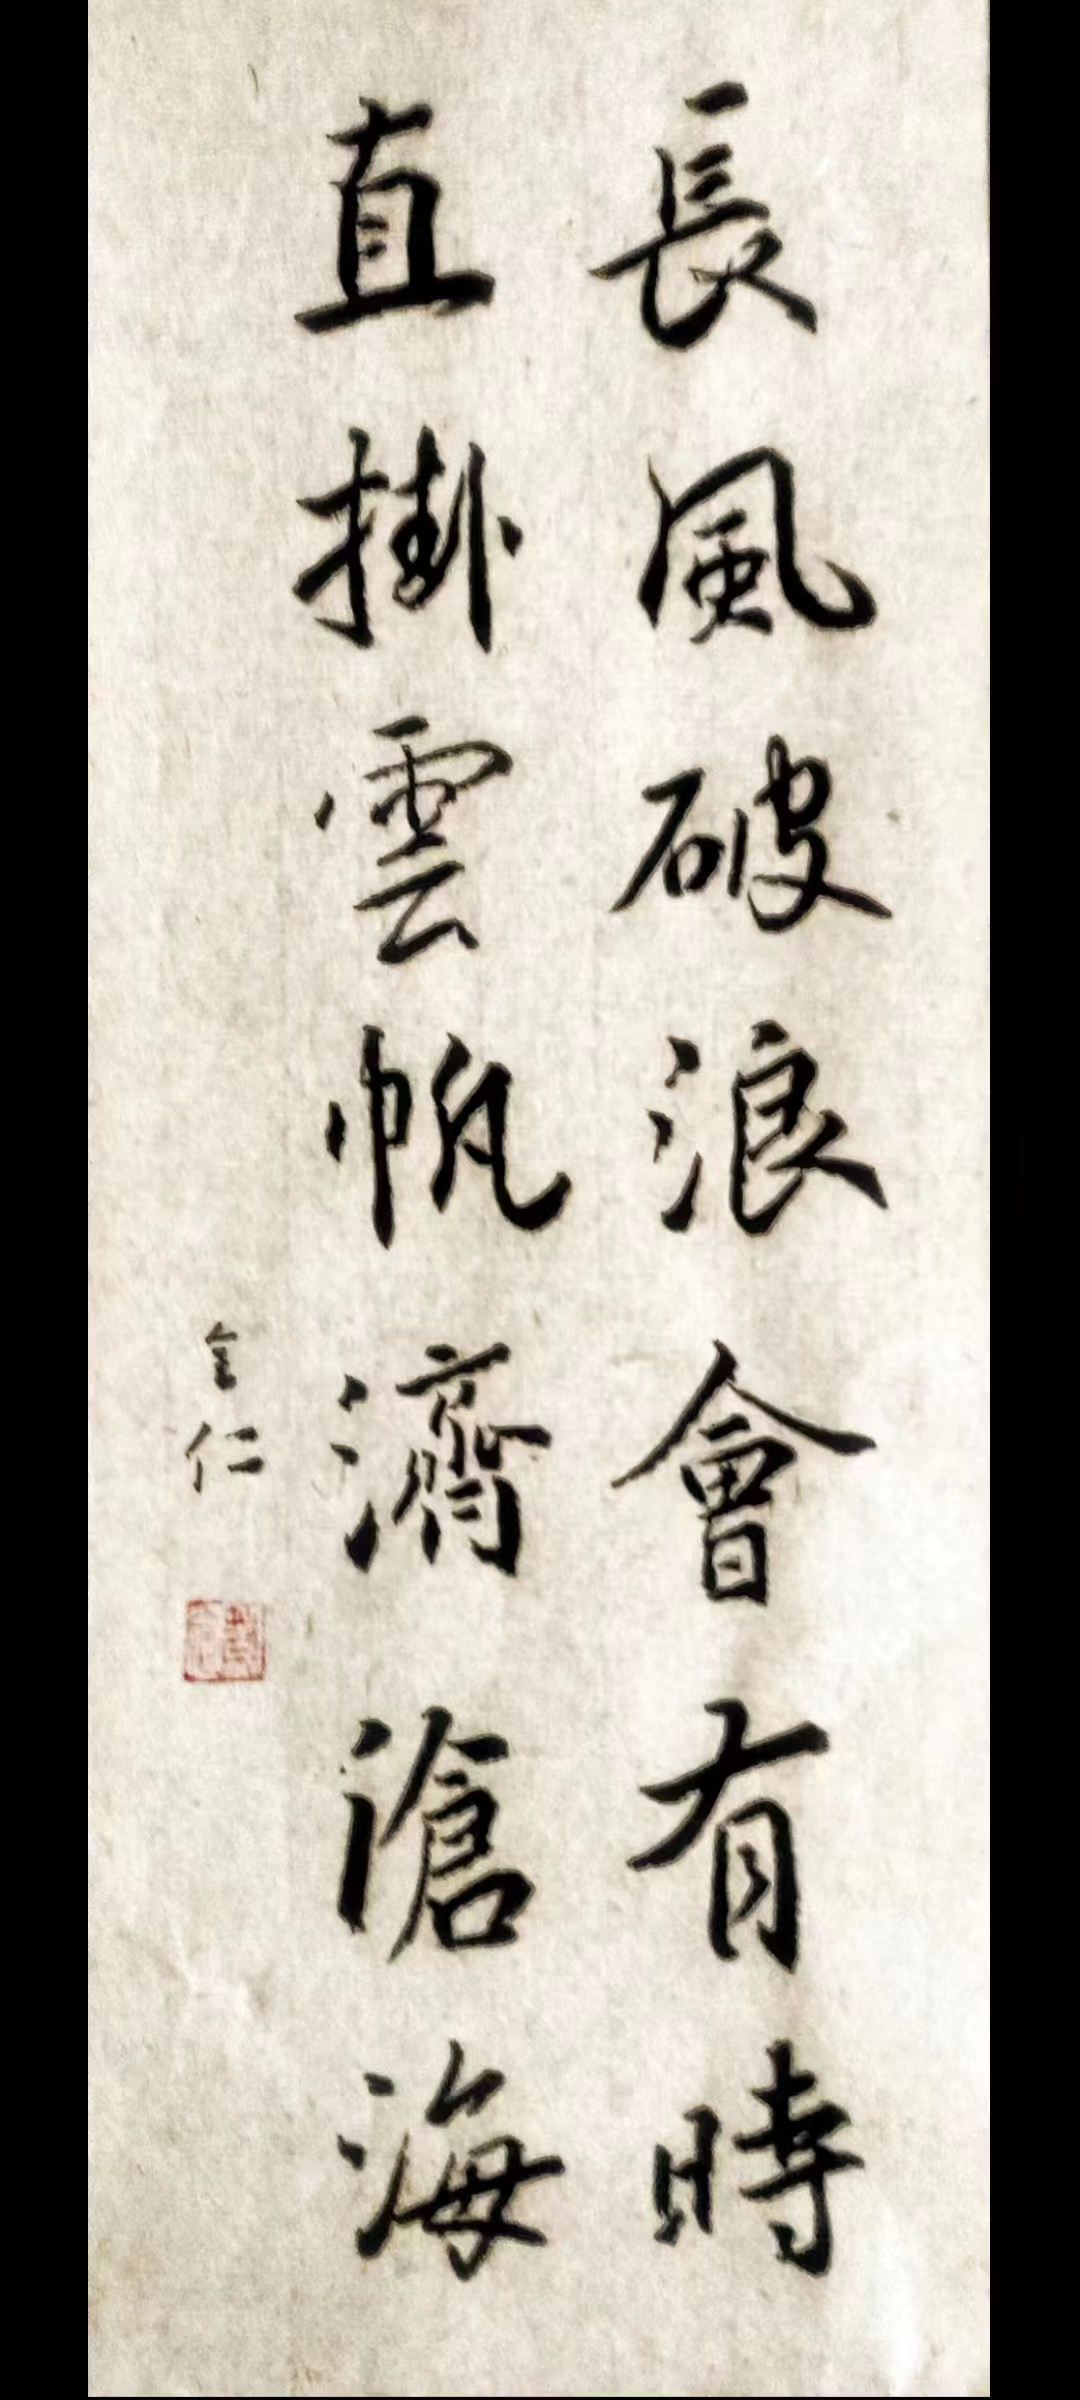 長風破浪會有時
直掛雲帆濟滄海
仁